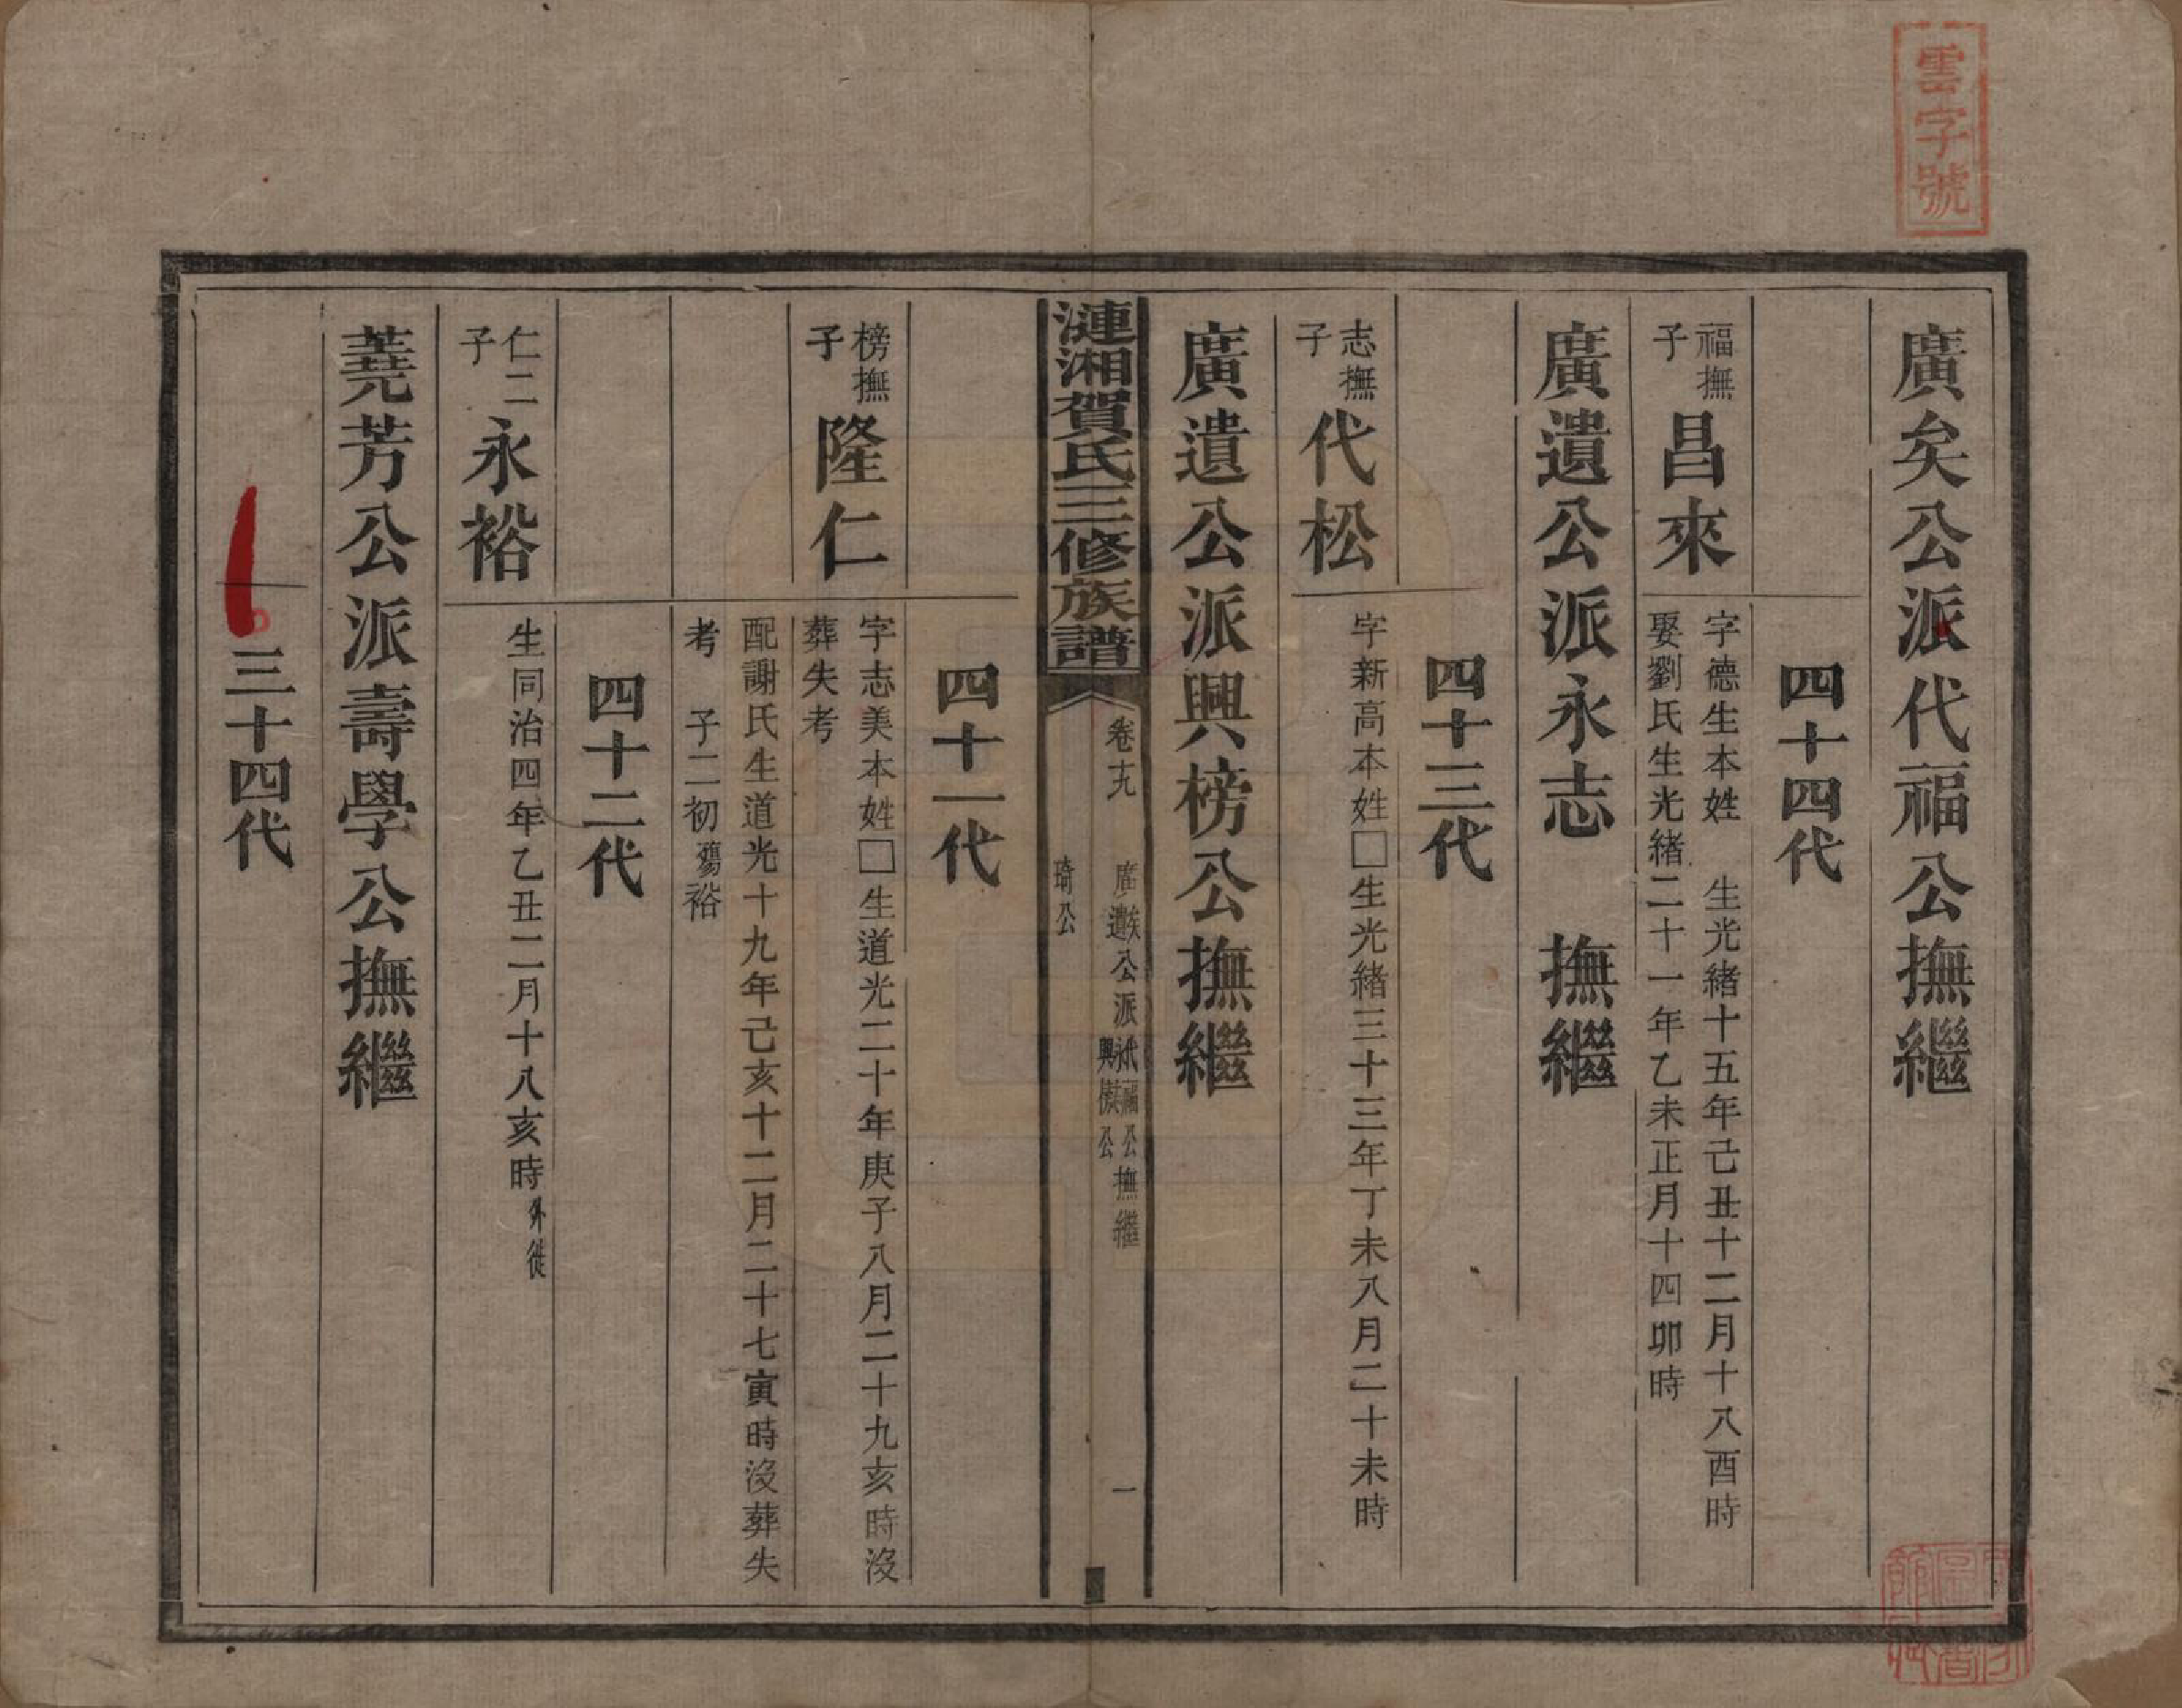 雲字號
廣矣公派代福公撫繼
四十四代
福撫子 昌來 字德生本姓 生光緒十五年己丑十二月十八酉時
娶劉氏生光緒二十一年乙未正月十四卯時
廣遺公派永志 撫繼
四十三代
志撫子 代松 字新高本姓□生光緒三十三年丁未八月二十未時
廣遺公派興榜公撫繼
漣湘賀氏三修族譜 卷十九 廣遺公派 代福公 永 興榜公 撫繼 一
琦公
四十一代
榜撫子 隆仁 字志美本姓□生道光二十年庚子八月二十九亥時沒
葬失考
配謝氏生道光十九年己亥十二月二十七寅時沒葬失
考 子二初殤裕
四十二代
仁二子 永裕 生同治四年乙丑二月十八亥時外徙
蕘芳公派壽學公撫繼
三十四代